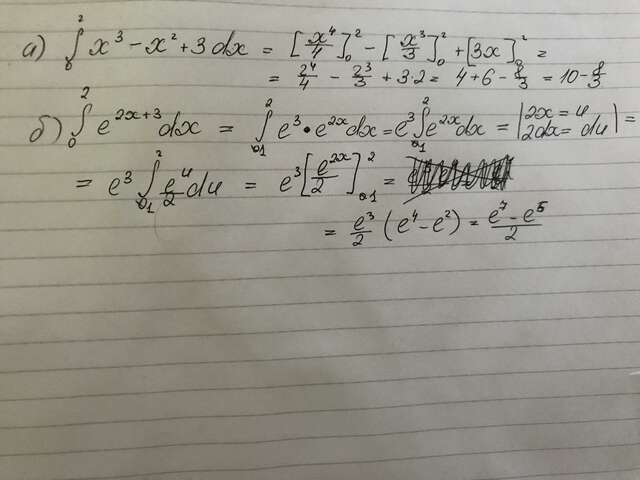 а) ∫₀² x³ - x² + 3 dx = [x⁴/4]₀² - [x³/3]₀² + [3x]₀² =
= 2⁴/4 - 2³/3 + 3·2 = 4 + 6 - 8/3 = 10 - 8/3
б) ∫₀² e^(2x+3) dx = ∫₁² e³ • e^(2x) dx = e³ ∫₁² e^(2x) dx = |2x = u 2dx = du| =
= e³ ∫₁² e^u/2 du = e³ [e^(2x)/2]₁² =
= e³/2 (e⁴ - e²) = (e⁷ - e⁵)/2